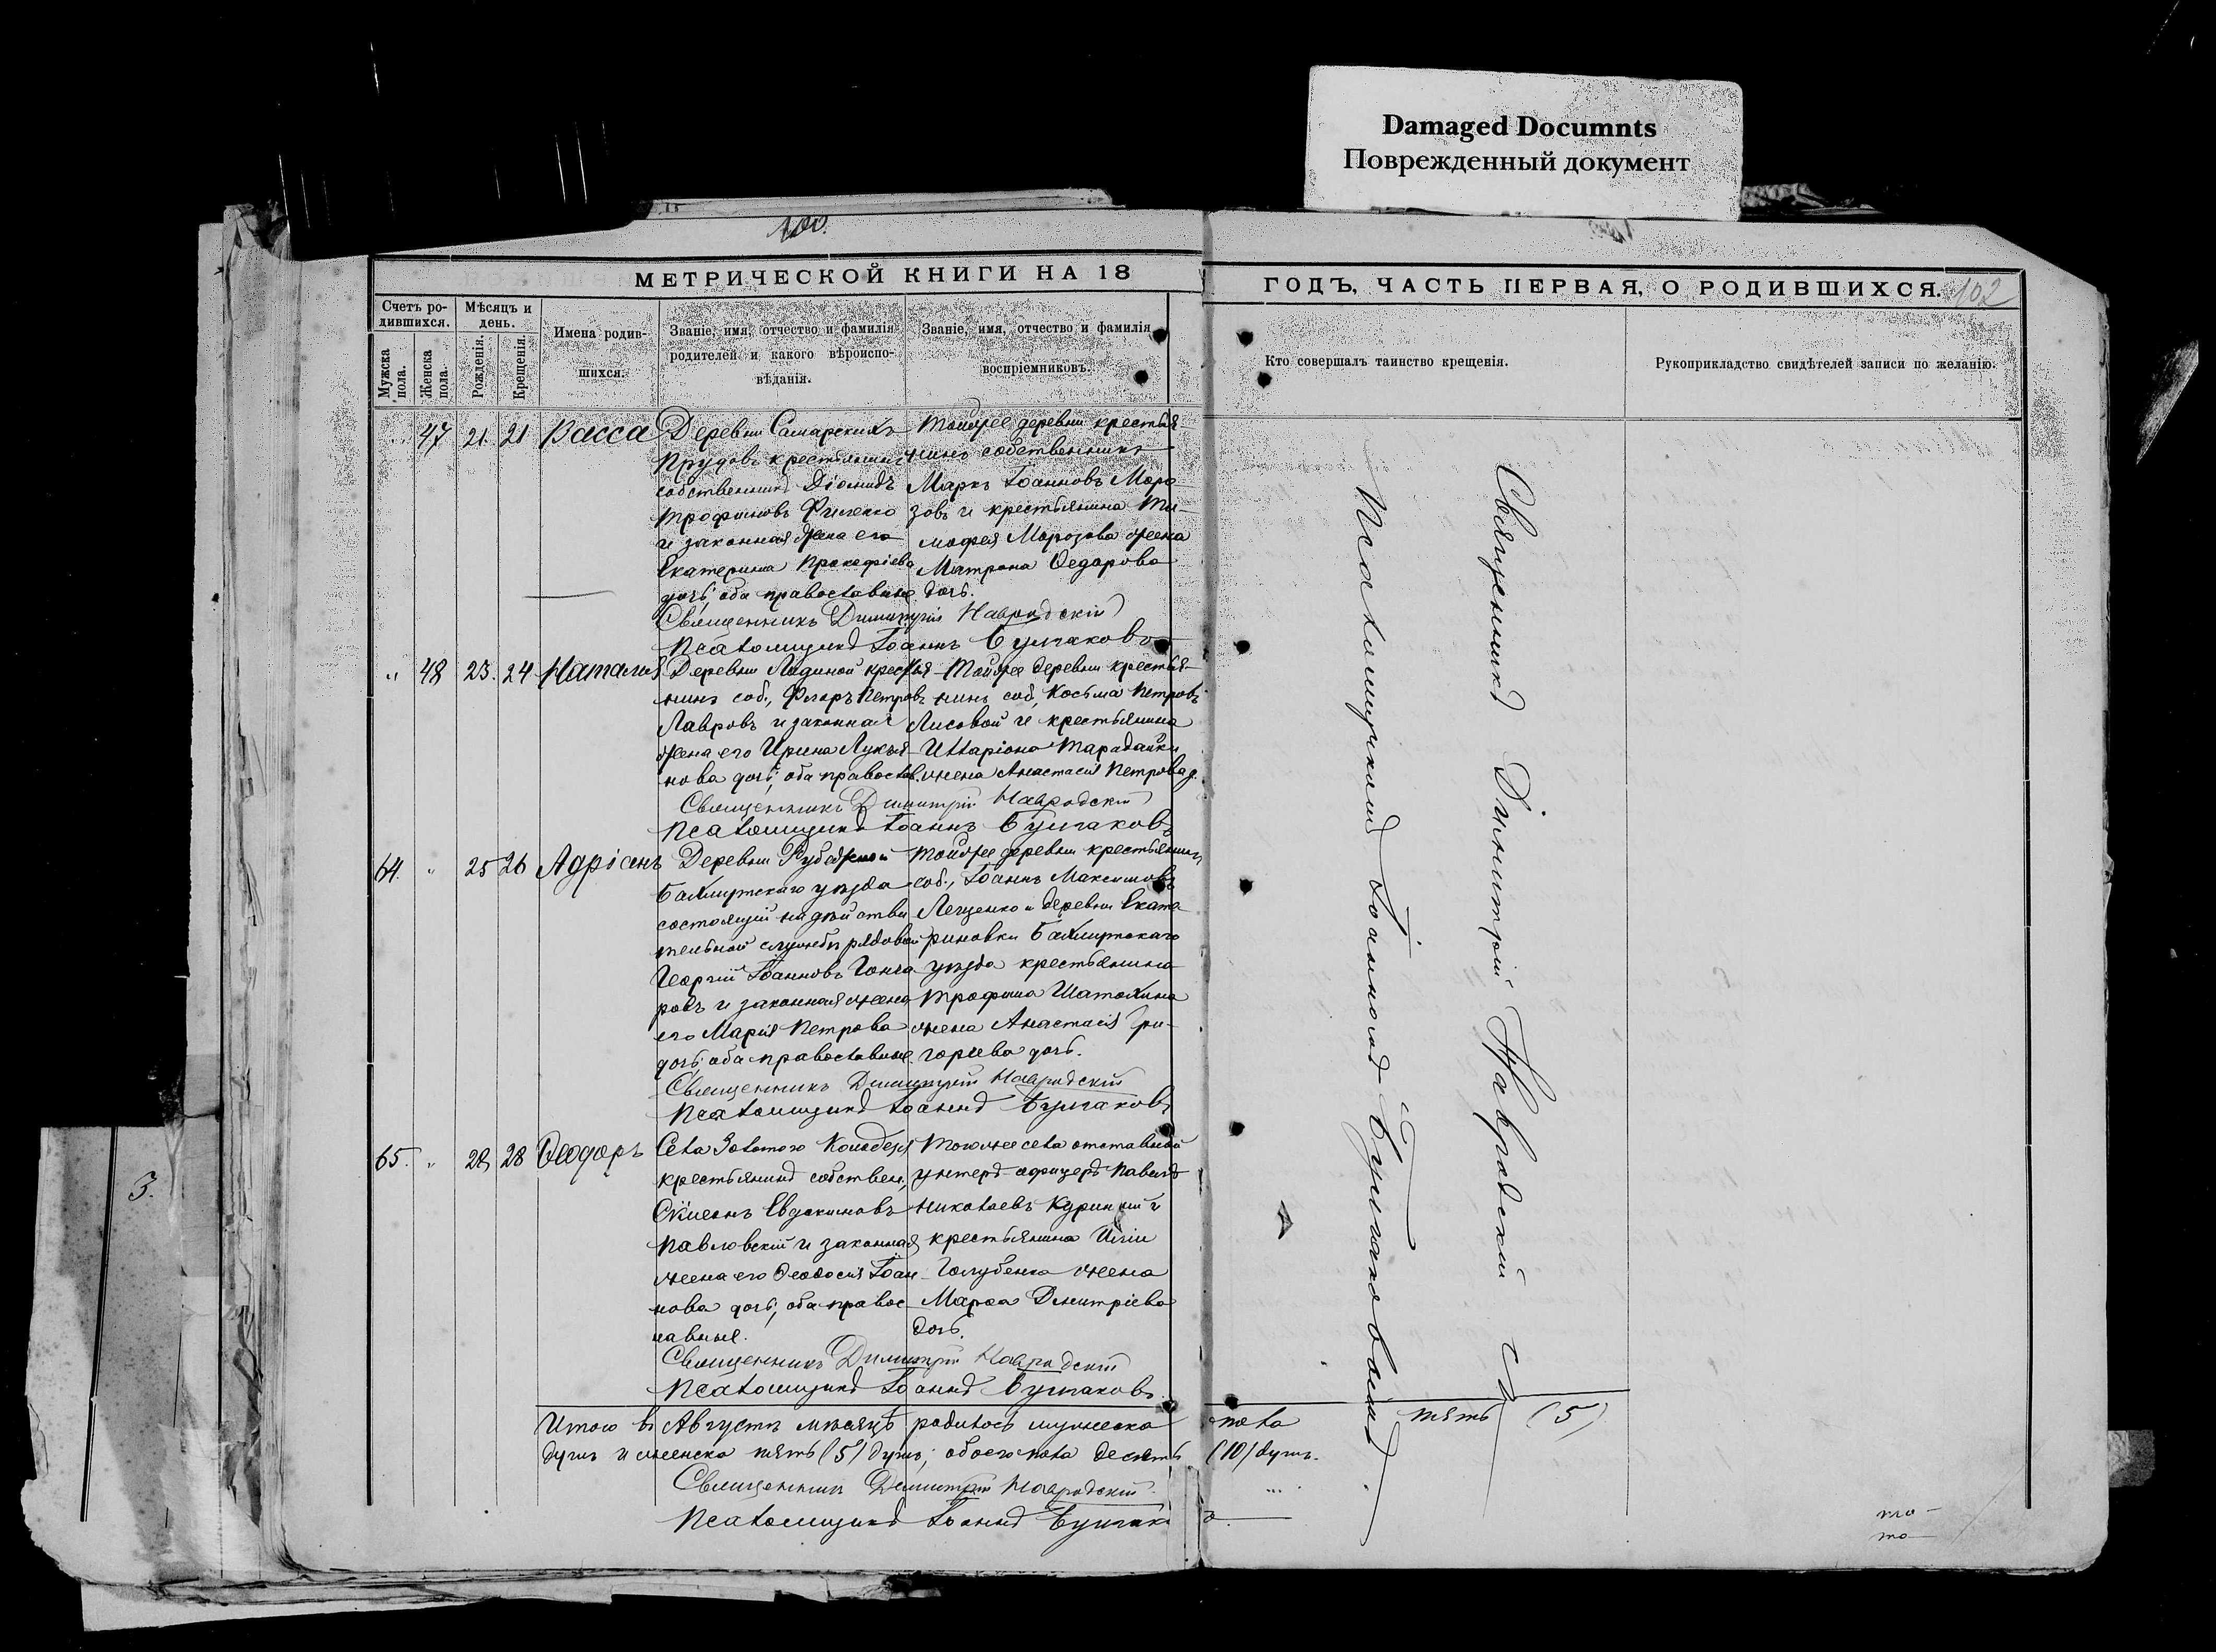 Damaged Documnts
Поврежденный документ
100.
МЕТРИЧЕСКОЙ КНИГИ НА 18
ГОДЪ, ЧАСТЬ ПЕРВАЯ, О РОДИВШИХСЯ.
102
Счетъ ро-
дившихся.
Мужска
пола.
Женска
пола.
Мѣсяцъ и
день.
Рожденія.
Крещенія.
Имена родив-
шихся.
Званіе, имя, отчество и фамилія
родителей и какого вѣроиспо-
вѣданія.
Званіе, имя, отчество и фамилія
воспріемниковъ.
Кто совершалъ таинство крещенія.
Рукоприкладство свидѣтелей записи по желанію.
47 21. 21 Васса
Деревни Самарскихъ
Прудовъ крестьянинъ
собственникъ Діомидъ
Трофимовъ
и законная жена его
Екатерина Прокофіева
дочь, оба православные
Тойже деревни крестья-
нинъ собственникъ
Маркъ Іоанновъ Моро
зовъ и крестьянина Ти-
мофея Морозова жена
Матрона Ѳедорова
дочь.
Священникъ Димитрій Навродскій
Псаломщикъ Іоаннъ Булгаковъ
" 48 23. 24 Наталія
Деревни крестья-
нинъ соб., Флоръ Петровъ
Лавровъ и законная
жена его Ирина Лукья-
нова дочь, оба православ.
Тойже деревни крестья-
нинъ соб., Косьма Петровъ
Лисовой и крестьянина
Илларіона
жена Анастасія Петрова д.
Священникъ Димитрій Навродскій
Псаломщикъ Іоаннъ Булгаковъ
64. " 25 26 Адріанъ
Деревни Рубежной
Бахмутскаго уѣзда
состоящій на дѣйстви
тельной службѣ рядовой
Георгій Іоанновъ Гонча
ровъ и законная жена
его Марія Петрова
дочь, оба православные.
Тойже деревни крестьянинъ
соб., Іоаннъ Максимовъ
Лещенко и деревни Екате
риновки Бахмутскаго
уѣзда крестьянина
Трофима Шатохина
жена Анастасія Гри-
горіева дочь.
Священникъ Димитрій Навродскій
Псаломщикъ Іоаннъ Булгаковъ
65. " 28 28 Ѳеодоръ
Села Золотого Колодезя
крестьянинъ собствен.,
Евдокимовъ
Павловскій и законная
жена его Ѳеодосія Іоан
нова дочь, оба правос
лавные.
Тогоже села отставной
унтеръ-офицеръ Павелъ
Николаевъ и
крестьянина Иліи
Голубенка жена
Марѳа Дмитріева
дочь.
Священникъ Димитрій Навродскій
Псаломщикъ Іоаннъ Булгаковъ.
Итого въ Августѣ мѣсяцѣ родилось мужеска пола пять (5)
душъ и женска пять (5) душъ; обоего пола десять (10) душъ.
Священникъ Димитрій Навродскій
Псаломщикъ Іоаннъ
Священникъ Димитрій Навродскій съ
Псаломщикомъ Іоанномъ Булгаковымъ.
3.